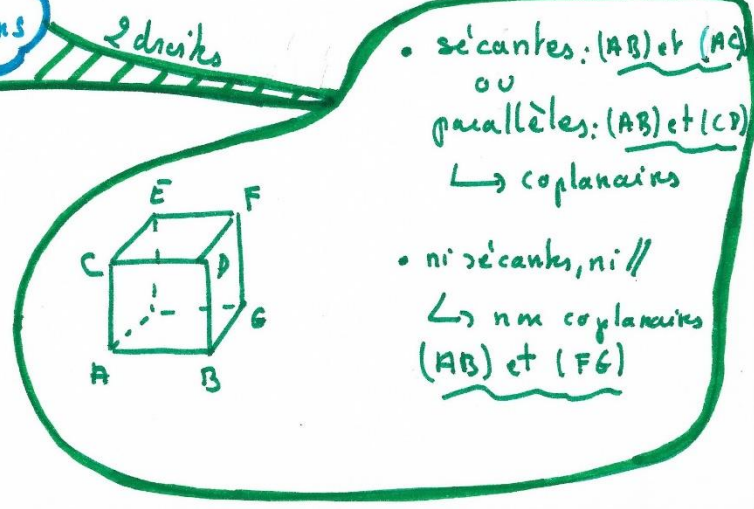 ns
2 droites
• sécantes : (AB) et (AC)
ou
parallèles : (AB) et (CD)
↳ coplanaires
• ni sécantes, ni //
↳ non coplanaires
(AB) et (FG)
E F
C D
G
A B